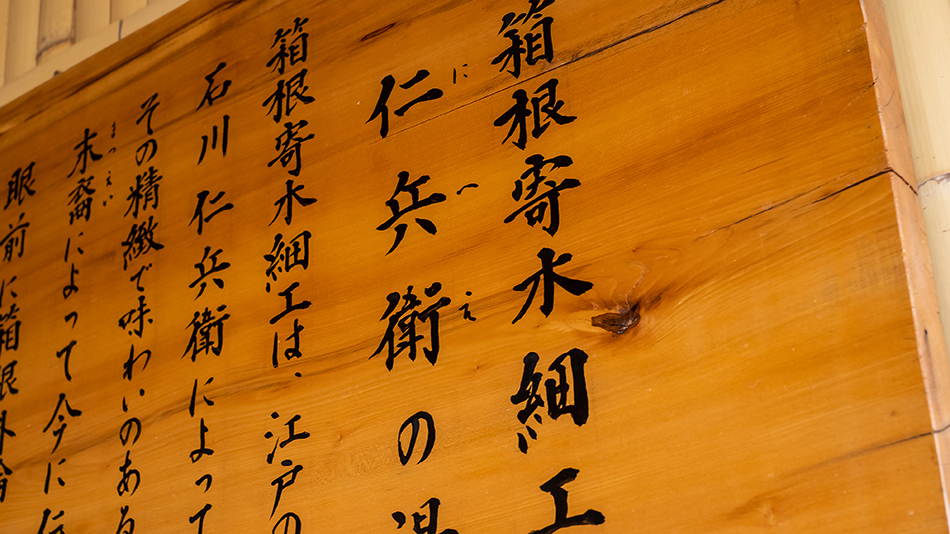 箱根寄木細工
にへえ
仁兵衛の
箱根寄木細工は、江戸の
石川仁兵衛によって
その精緻で味わいのある
まつえい
末裔によって今に伝
眼前に箱根外輪